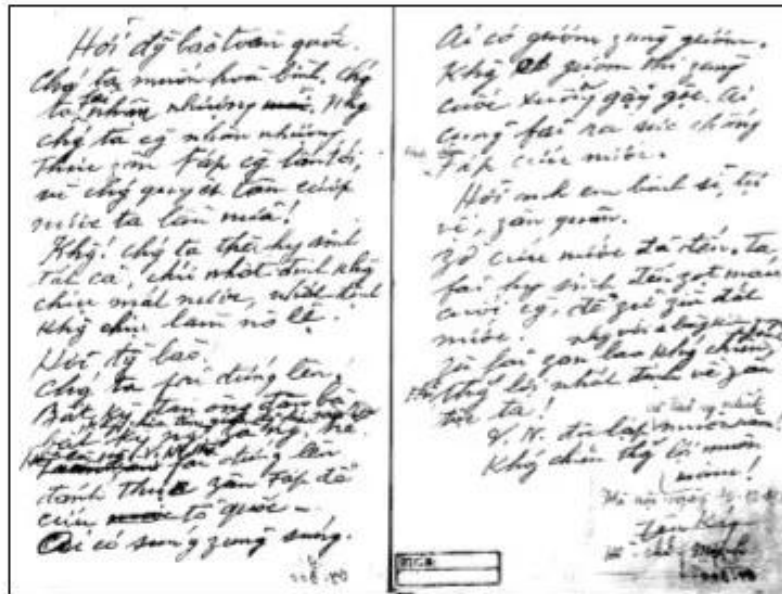 Hỡi đg̃ bào toàn quốc.
Chg̃ ta muốn hoà bình, chg̃
ta fải nhân nhượng. Nhg̃
chg̃ ta cg̃ nhân nhượng
thực zân Fáp cg̃ lấn tới,
vì chg̃ quyết tâm cướp
nước ta lần nữa!
Khg̃! chg̃ ta thà hy sinh
tất cả, chứ nhất định khg̃
chịu mất nước, nhất định
khg̃ chịu làm nô lệ.
Hỡi đg̃ bào.
Chg̃ ta fải đứng lên!
Bất kỳ đàn ông đàn bà
bất kỳ ng̃ zà ng̃ trẻ.
fải đứng lên
đánh thực zân Fáp để
cứu tổ quốc –
Ai có súng zùng súng.
Ai có gươm zùng gươm.
Khg̃ gươm thì zùng
cuốc xuổng gậy gộc. Ai
cũng fải ra sức chống
Fáp cứu nước.
Hỡi anh em binh sĩ, tự
vệ, zân quân.
Zờ cứu nước đã đến. Ta
fải hy sinh đến zọt máu
cuối cg̃, để zữ zìn đất
nước.
Zù fải zan lao khg̃ chiến,
thg̃ lợi nhất định về zân
tộc ta!
V.N. độc lập muôn năm!
Khg̃ chiến thg̃ lợi muôn
năm!
Hà nội ngày
Hồ chí Minh